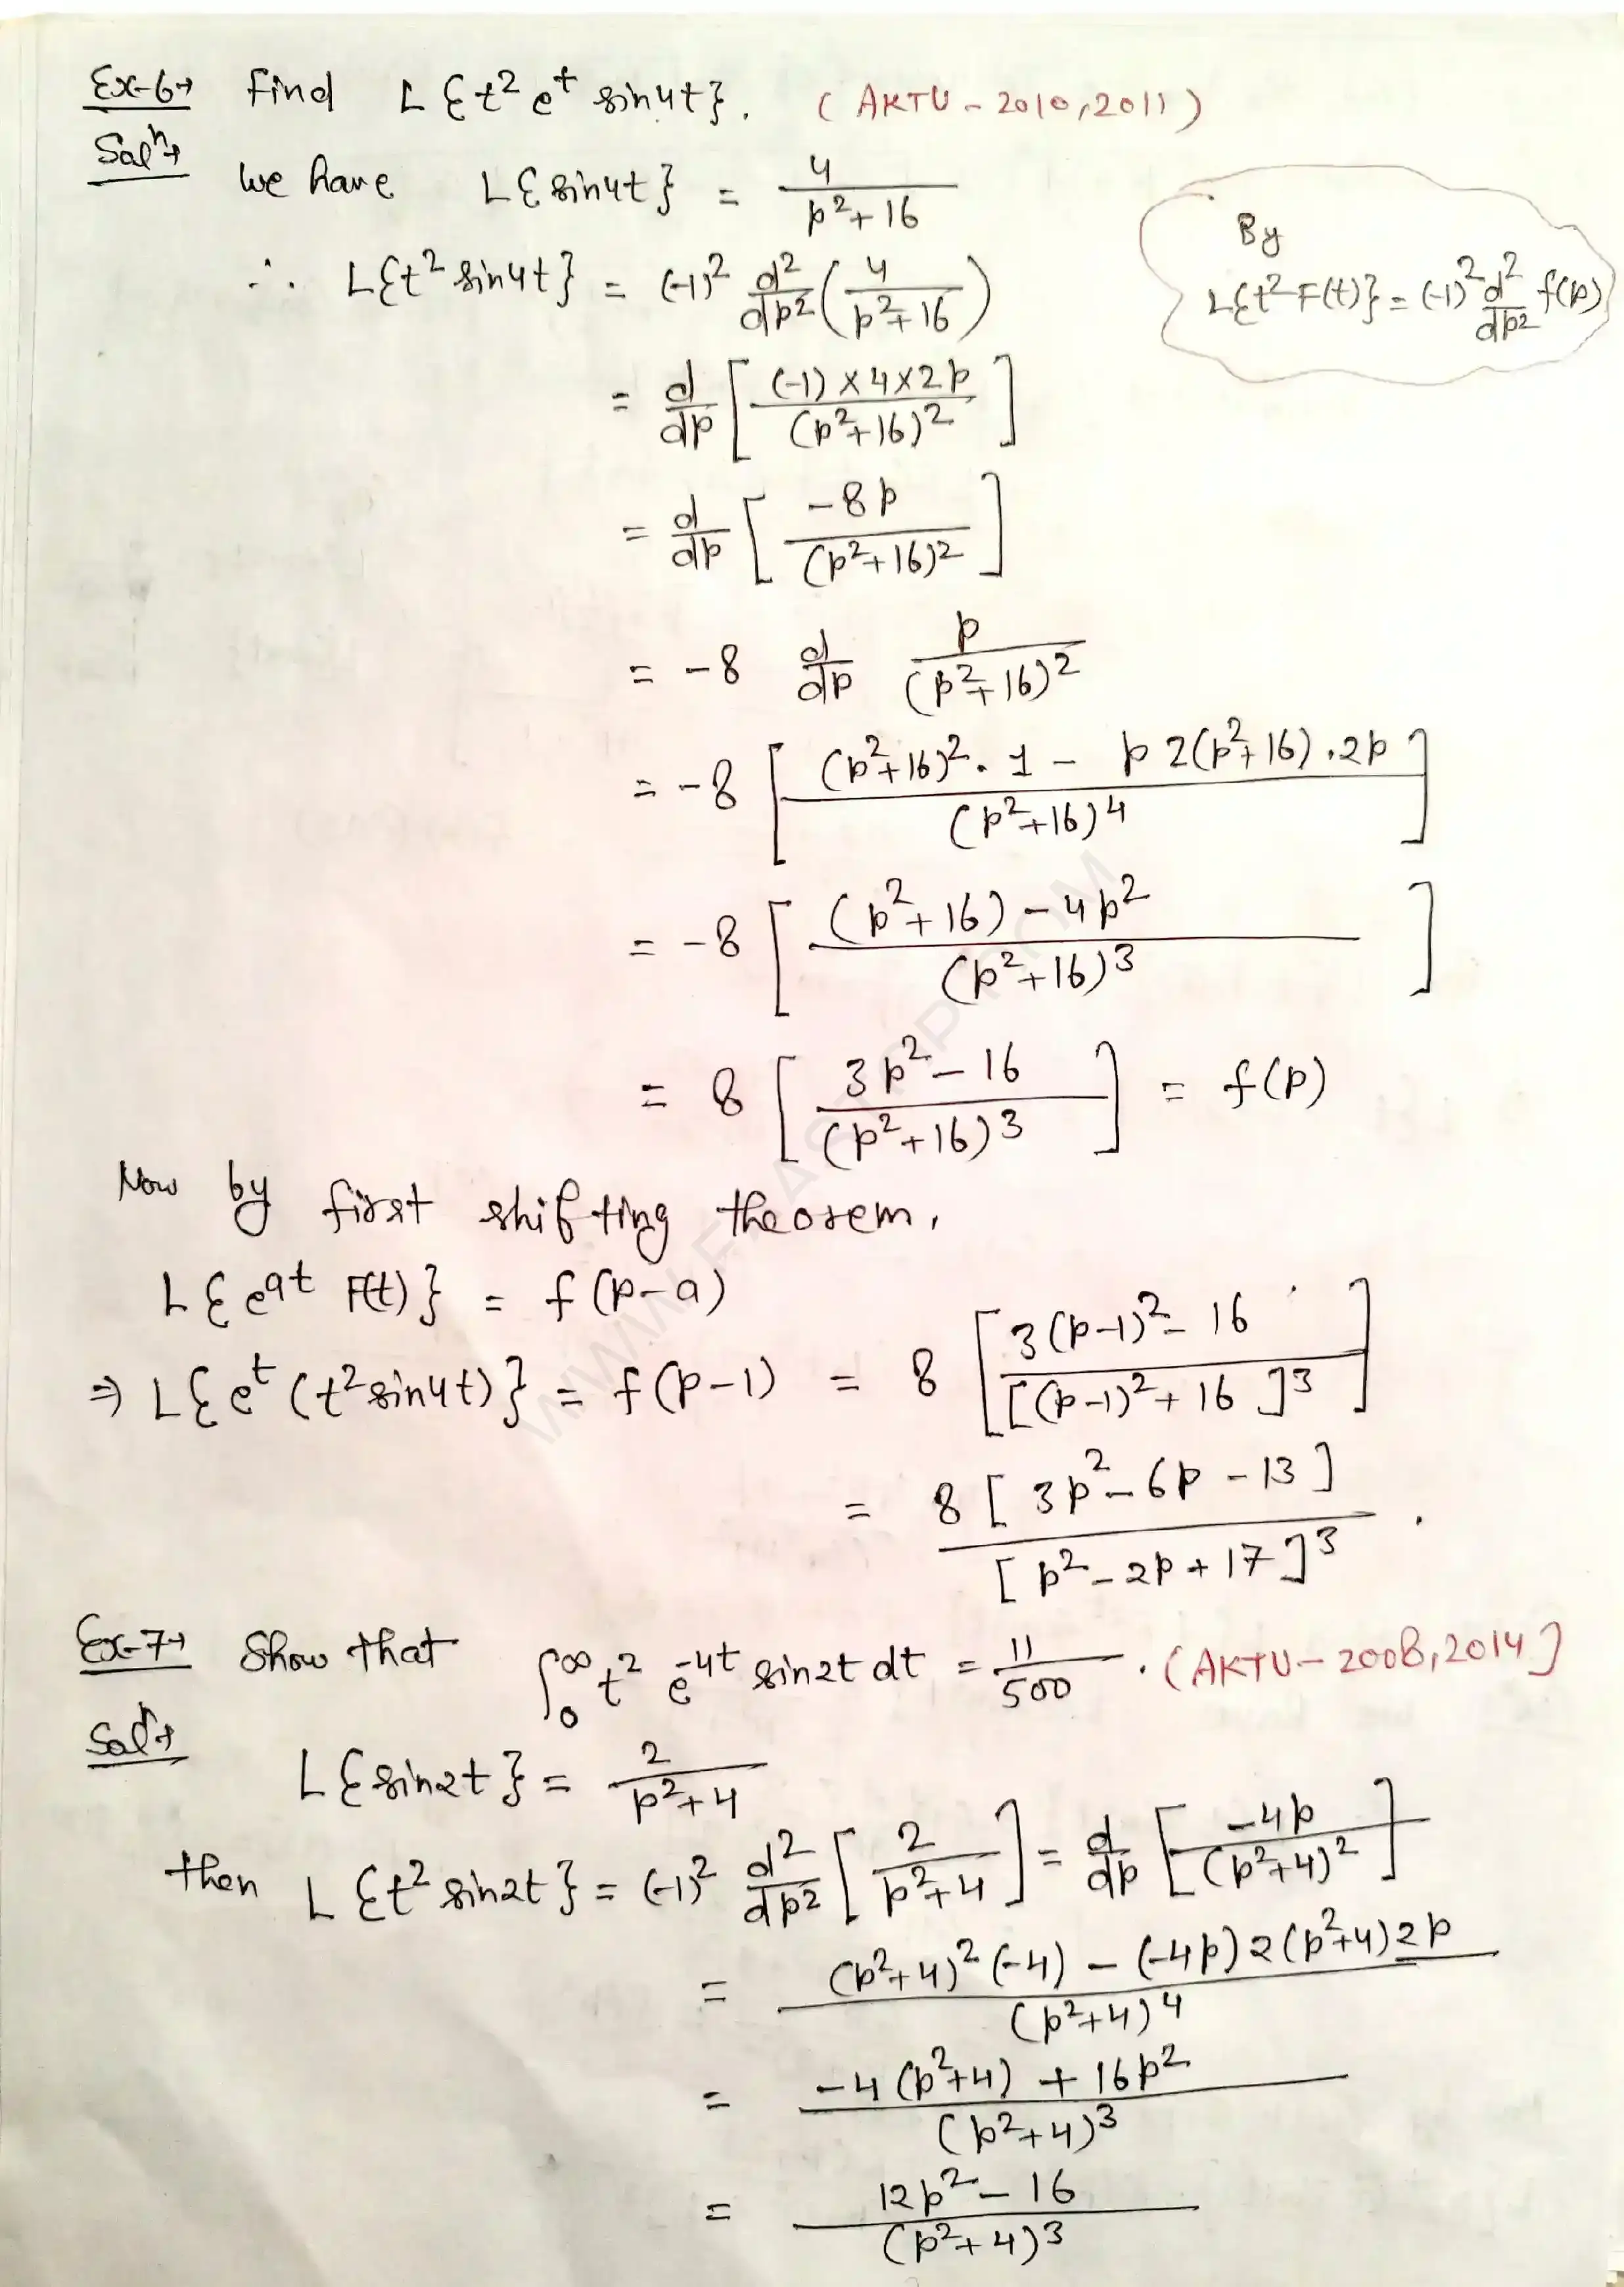 Ex-6→ Find L{t² eᵗ sin4t}. (AKTU - 2010, 2011)
Solⁿ→ we have L{sin4t} = 4/(p²+16)
∴ L{t² sin4t} = (-1)² d²/dp² (4/(p²+16))
By
L{t² F(t)} = (-1)² d²/dp² f(p)
= d/dp [(-1)×4×2p/(p²+16)²]
= d/dp [-8p/(p²+16)²]
= -8 d/dp p/(p²+16)²
= -8 [((p²+16)².1 - p 2(p²+16).2p)/(p²+16)⁴]
= -8 [((p²+16) - 4p²)/(p²+16)³]
= 8 [(3p²-16)/(p²+16)³] = f(p)
Now by first shifting theorem,
L{eᵃᵗ F(t)} = f(p-a)
⇒ L{eᵗ (t² sin4t)} = f(p-1) = 8 [(3(p-1)²-16)/[(p-1)²+16]³]
= 8[3p²-6p-13]/[p²-2p+17]³.
Ex-7→ Show that ∫₀^∞ t² e⁻⁴ᵗ sin2t dt = 11/500. (AKTU-2008, 2014]
Solⁿ→
L{sin2t} = 2/(p²+4)
then L{t² sin2t} = (-1)² d²/dp² [2/(p²+4)] = d/dp [-4p/(p²+4)²]
= ((p²+4)²(-4) - (-4p)2(p²+4)2p)/(p²+4)⁴
= (-4(p²+4) + 16p²)/(p²+4)³
= (12p²-16)/(p²+4)³